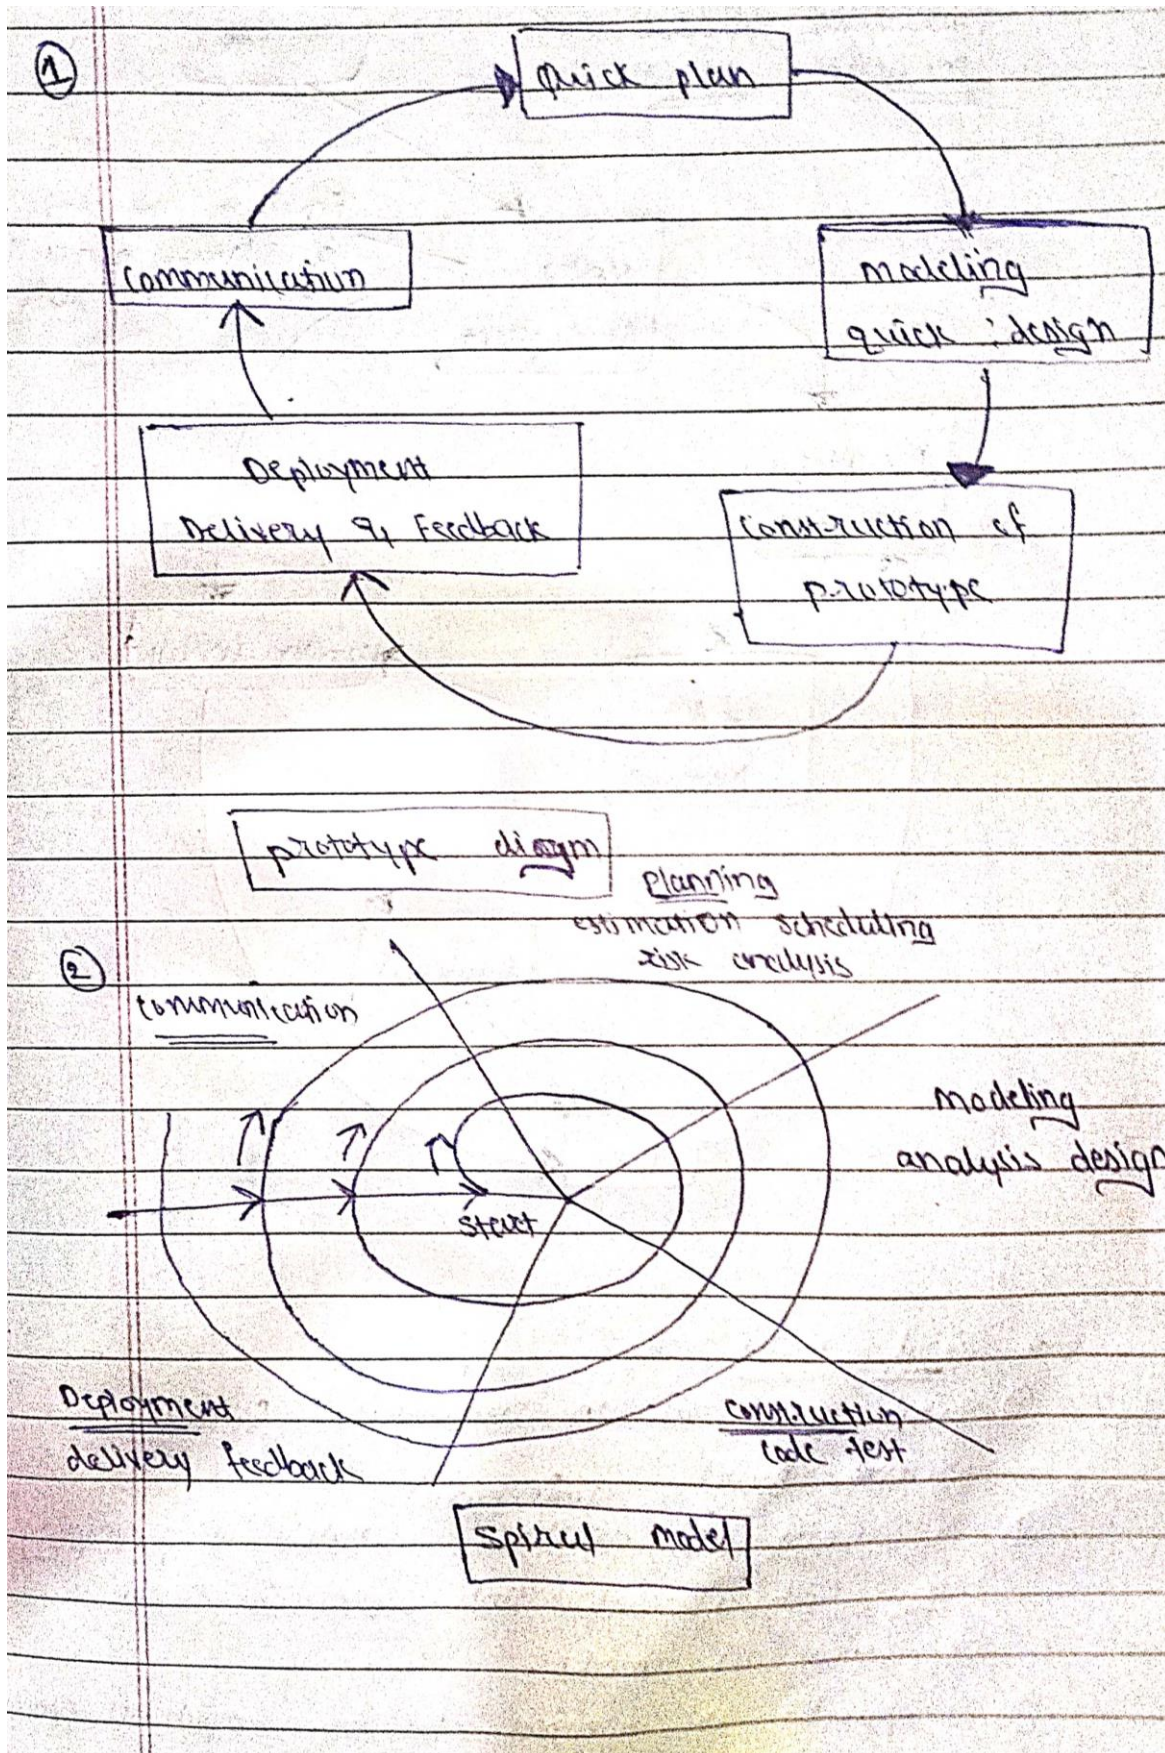 1
Quick plan
Communication
modeling
quick design
Deployment
Delivery & Feedback
Construction of
prototype
prototype diagm
planning
estimation scheduling
risk analysis
2
Communication
modeling
analysis design
start
Deployment
delivery feedback
construction
code test
Spiral Model